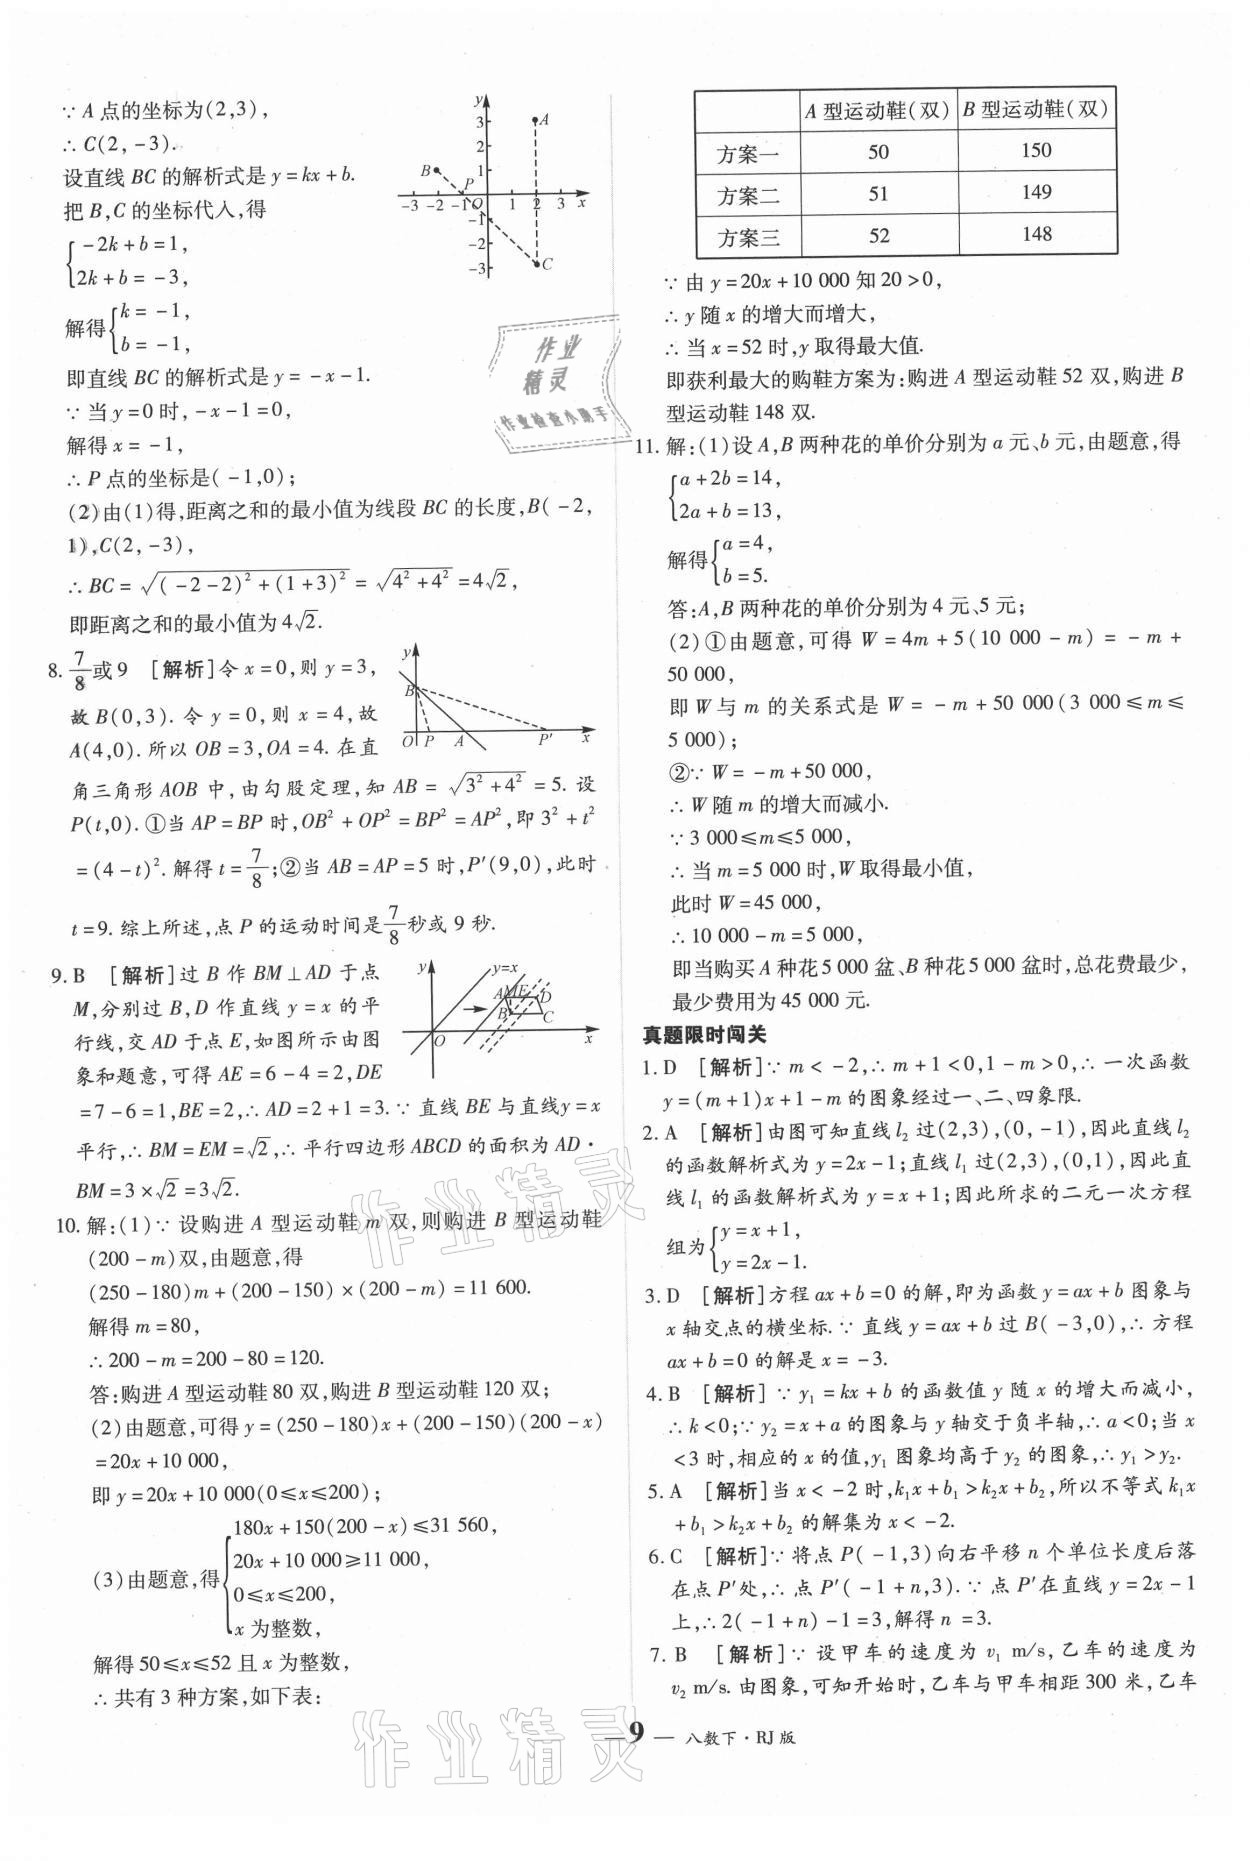 ∵ A 点的坐标为(2,3),
∴ C(2, -3).
设直线 BC 的解析式是 y = kx + b.
把 B,C 的坐标代入,得
{ -2k + b = 1,
2k + b = -3,
解得{ k = -1,
b = -1,
即直线 BC 的解析式是 y = -x - 1.
∵ 当 y = 0 时, -x - 1 = 0,
解得 x = -1,
∴ P 点的坐标是( -1,0);
(2)由(1)得,距离之和的最小值为线段 BC 的长度,B( -2,
1),C(2, -3),
∴ BC = √(( -2 - 2)² + (1 + 3)²) = √(4² + 4²) = 4√2,
即距离之和的最小值为 4√2.
y
3
2
1
-3 -2 -1 O 1 2 3 x
-1
-2
-3
A
B
P
C
8. 7/8 或 9 [解析]令 x = 0,则 y = 3,
故 B(0,3). 令 y = 0,则 x = 4,故
A(4,0). 所以 OB = 3,OA = 4. 在直
角三角形 AOB 中,由勾股定理,知 AB = √(3² + 4²) = 5. 设
P(t,0). ①当 AP = BP 时,OB² + OP² = BP² = AP²,即 3² + t²
= (4 - t)². 解得 t = 7/8;②当 AB = AP = 5 时,P′(9,0),此时
t = 9. 综上所述,点 P 的运动时间是 7/8 秒或 9 秒.
y
B
O P A P′ x
9. B [解析]过 B 作 BM ⊥ AD 于点
M,分别过 B,D 作直线 y = x 的平
行线,交 AD 于点 E,如图所示由图
象和题意,可得 AE = 6 - 4 = 2,DE
= 7 - 6 = 1,BE = 2,∴ AD = 2 + 1 = 3. ∵ 直线 BE 与直线 y = x
平行,∴ BM = EM = √2,∴ 平行四边形 ABCD 的面积为 AD ·
BM = 3 × √2 = 3√2.
y
y=x
A M E D
B C
O x
10. 解:(1) ∵ 设购进 A 型运动鞋 m 双,则购进 B 型运动鞋
(200 - m)双,由题意,得
(250 - 180)m + (200 - 150) × (200 - m) = 11 600.
解得 m = 80,
∴ 200 - m = 200 - 80 = 120.
答:购进 A 型运动鞋 80 双,购进 B 型运动鞋 120 双;
(2)由题意,可得 y = (250 - 180)x + (200 - 150)(200 - x)
= 20x + 10 000,
即 y = 20x + 10 000(0 ≤ x ≤ 200);
(3)由题意,得{ 180x + 150(200 - x) ≤ 31 560,
20x + 10 000 ≥ 11 000,
0 ≤ x ≤ 200,
x 为整数,
解得 50 ≤ x ≤ 52 且 x 为整数,
∴ 共有 3 种方案,如下表:
A 型运动鞋(双) B 型运动鞋(双)
方案一 50 150
方案二 51 149
方案三 52 148
∵ 由 y = 20x + 10 000 知 20 > 0,
∴ y 随 x 的增大而增大,
∴ 当 x = 52 时,y 取得最大值.
即获利最大的购鞋方案为:购进 A 型运动鞋 52 双,购进 B
型运动鞋 148 双.
11. 解:(1)设 A,B 两种花的单价分别为 a 元、b 元,由题意,得
{ a + 2b = 14,
2a + b = 13,
解得{ a = 4,
b = 5.
答:A,B 两种花的单价分别为 4 元、5 元;
(2) ①由题意,可得 W = 4m + 5(10 000 - m) = -m +
50 000,
即 W 与 m 的关系式是 W = -m + 50 000(3 000 ≤ m ≤
5 000);
②∵ W = -m + 50 000,
∴ W 随 m 的增大而减小.
∵ 3 000 ≤ m ≤ 5 000,
∴ 当 m = 5 000 时,W 取得最小值,
此时 W = 45 000,
∴ 10 000 - m = 5 000,
即当购买 A 种花 5 000 盆、B 种花 5 000 盆时,总花费最少,
最少费用为 45 000 元.
真题限时闯关
1. D [解析]∵ m < -2,∴ m + 1 < 0,1 - m > 0,∴ 一次函数
y = (m + 1)x + 1 - m 的图象经过一、二、四象限.
2. A [解析]由图可知直线 l₂ 过(2,3),(0, -1),因此直线 l₂
的函数解析式为 y = 2x - 1;直线 l₁ 过(2,3),(0,1),因此直
线 l₁ 的函数解析式为 y = x + 1;因此所求的二元一次方程
组为{ y = x + 1,
y = 2x - 1.
3. D [解析]方程 ax + b = 0 的解,即为函数 y = ax + b 图象与
x 轴交点的横坐标. ∵ 直线 y = ax + b 过 B( -3,0),∴ 方程
ax + b = 0 的解是 x = -3.
4. B [解析] ∵ y₁ = kx + b 的函数值 y 随 x 的增大而减小,
∴ k < 0;∵ y₂ = x + a 的图象与 y 轴交于负半轴,∴ a < 0;当 x
< 3 时,相应的 x 的值,y₁ 图象均高于 y₂ 的图象,∴ y₁ > y₂.
5. A [解析]当 x < -2 时,k₁x + b₁ > k₂x + b₂,所以不等式 k₁x
+ b₁ > k₂x + b₂ 的解集为 x < -2.
6. C [解析]∵ 将点 P( -1,3)向右平移 n 个单位长度后落
在点 P′处,∴ 点 P′( -1 + n,3). ∵ 点 P′在直线 y = 2x - 1
上,∴ 2( -1 + n) - 1 = 3,解得 n = 3.
7. B [解析]∵ 设甲车的速度为 v₁ m/s,乙车的速度为
v₂ m/s. 由图象,可知开始时,乙车与甲车相距 300 米,乙车
作业
精灵
作业检查小助手
作业精灵
作业精灵
— 9 — 八数下 · RJ 版